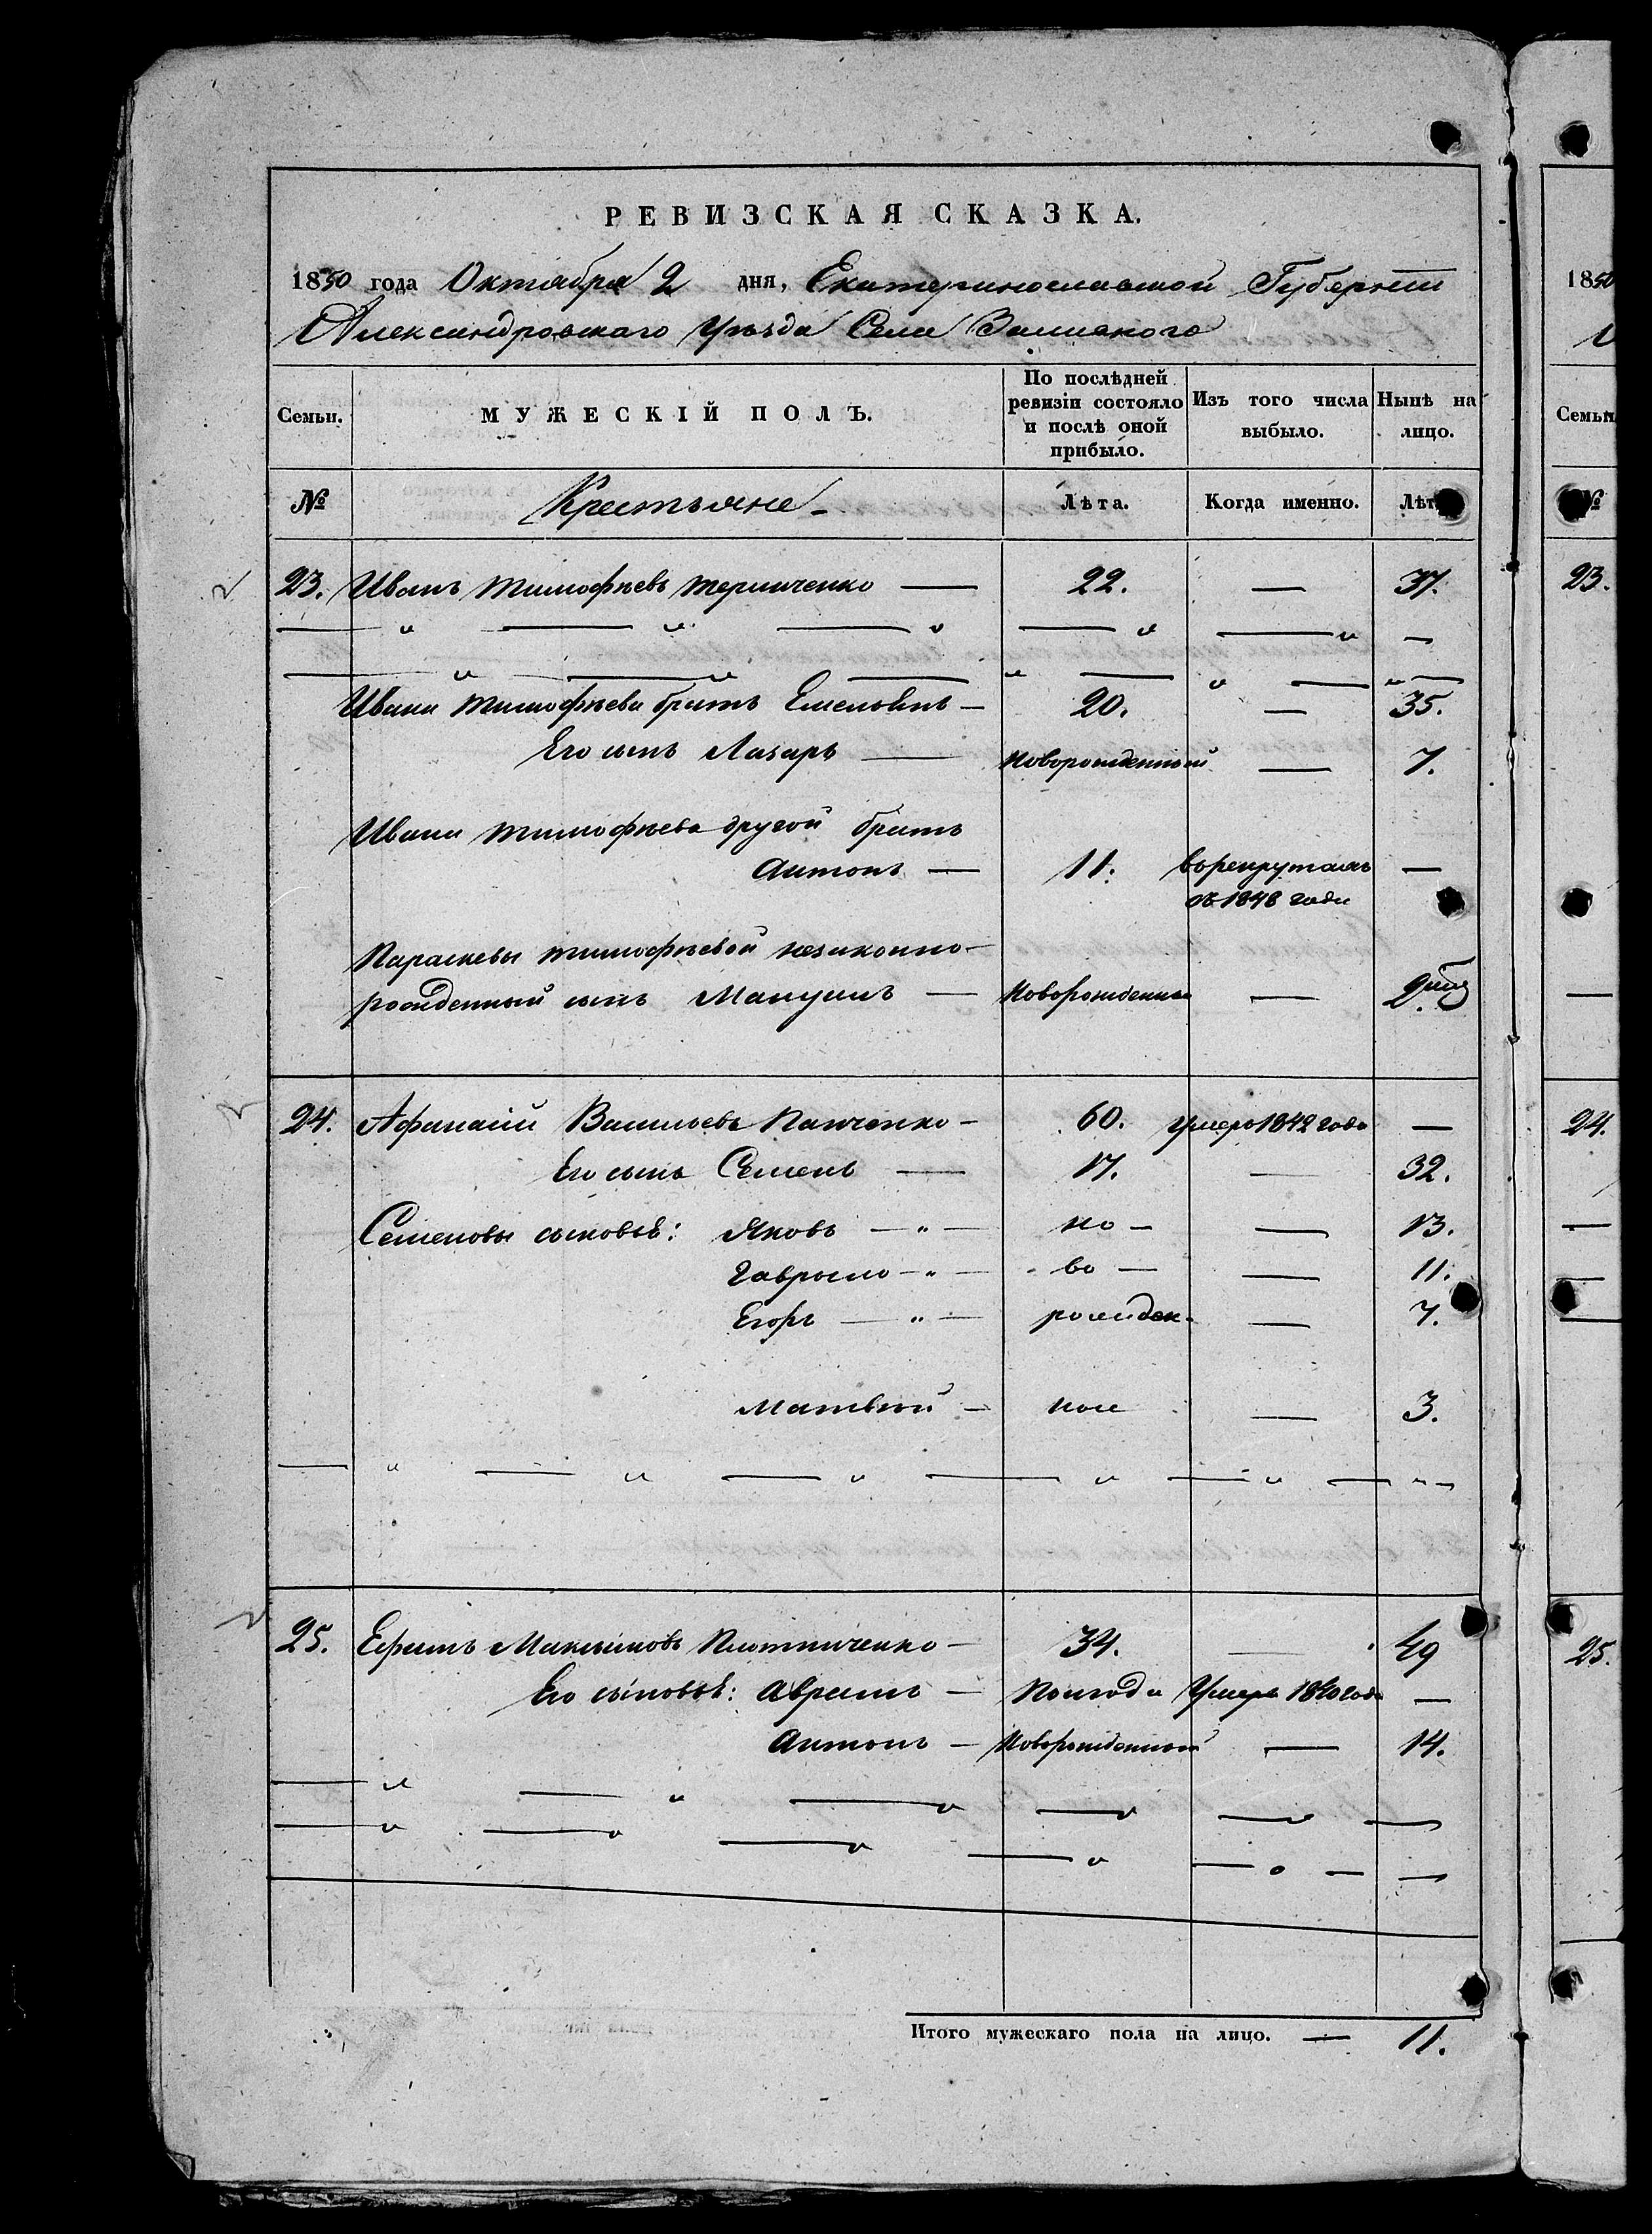 РЕВИЗСКАЯ СКАЗКА.
1850 года Октября 2 дня, Екатеринославской Губерніи
Александровскаго Уѣзда Села
Семьи. МУЖЕСКІЙ ПОЛЪ. По послѣдней ревизіи состояло и послѣ оной прибыло. Изъ того числа выбыло. Нынѣ на лицо.
№ Крестьяне Лѣта. Когда именно. Лѣт
23. Иванъ Тимофѣевъ — 22. — 37.
Ивана Тимофѣева братъ Емельянъ — 20. — 35.
Его сынъ Лазарь — Новорожденный — 7.
Ивана Тимофѣева другой братъ
Антонъ — 11. въ рекрутахъ —
съ 1848 года
Параскевы Тимофѣевой незаконно-
рожденный сынъ — Новорожденный — 2
24. Афанасій Васильевъ Панченко — 60. умеръ 1842 года —
Его сынъ Семенъ — 17. — 32.
Семеновы сыновья: Яковъ — " — но — — 13.
Гаврыло — " — во — — 11.
Егоръ — " — рожден- — 7.
Матвѣй — ные — 3.
25. Ефимъ Максимовъ Плотниченко — 34. — 49
Его сыновья: Аврамъ — Полгода Умеръ 1840 года —
Антонъ — Новорожденный — 14.
Итого мужескаго пола на лицо. — 11.
1850
Семьи
№
23.
24.
25.